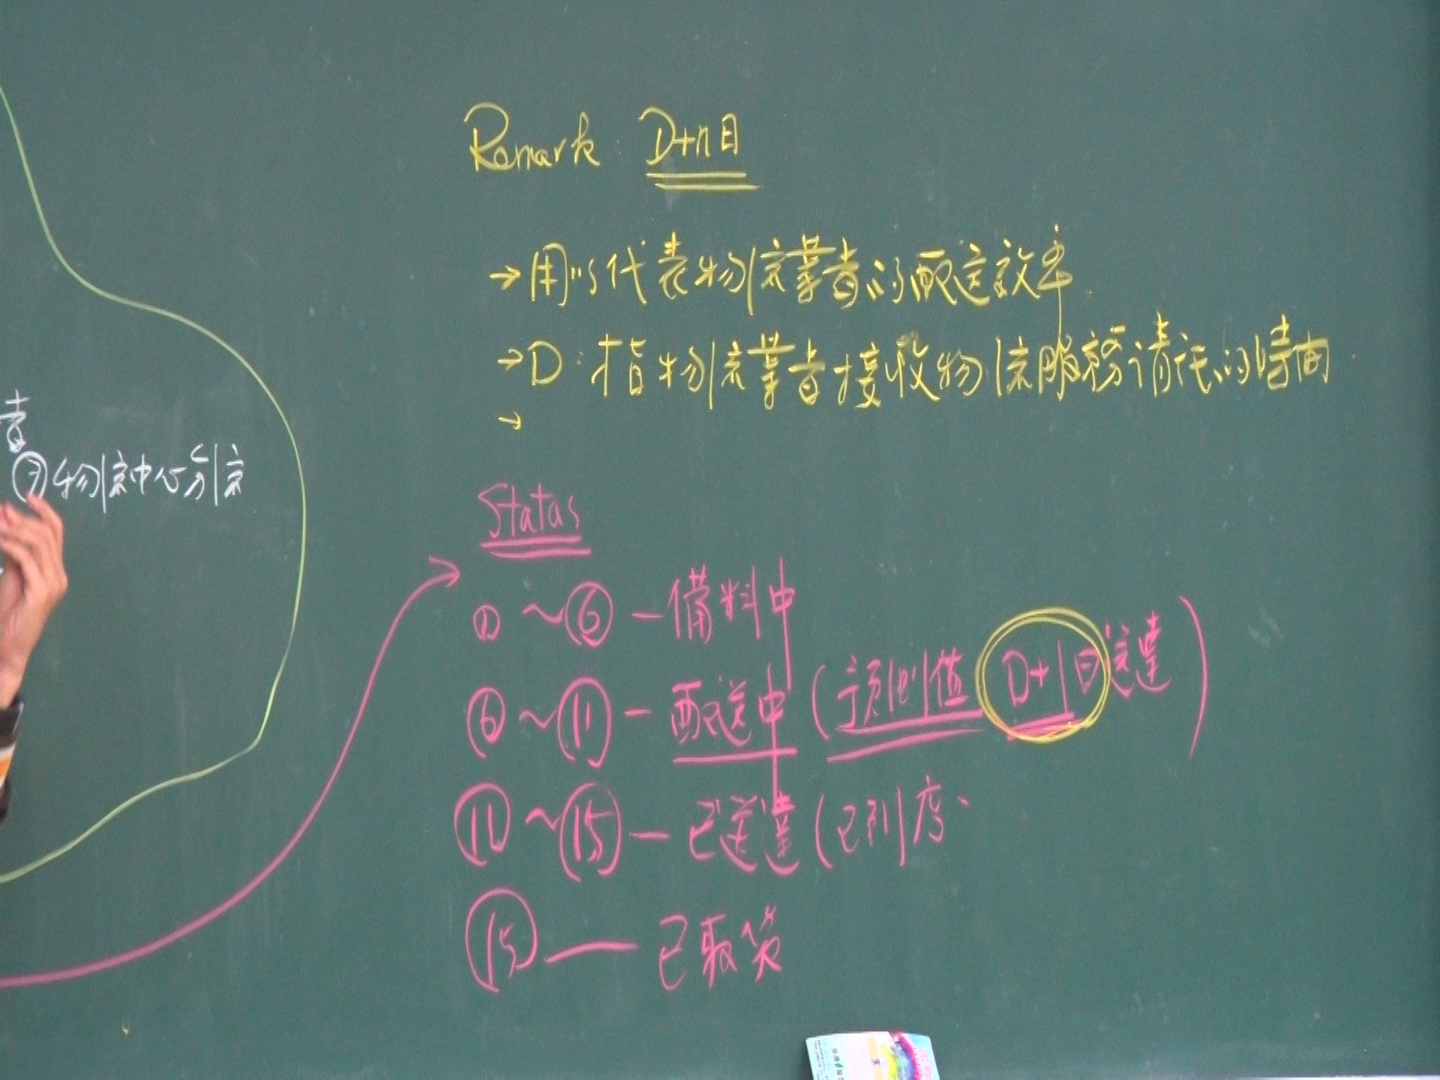 Remark: D+n日
→用以代表物流業者的配送效率.
→D:指物流業者接收物流服務請託的時間.
→
⑦物流中心分流
Status
①~⑥—備料中
⑥~⑪—配送中(預測值 D+1日送達)
⑪~⑮—已送達(已到店、
⑮—已取貨